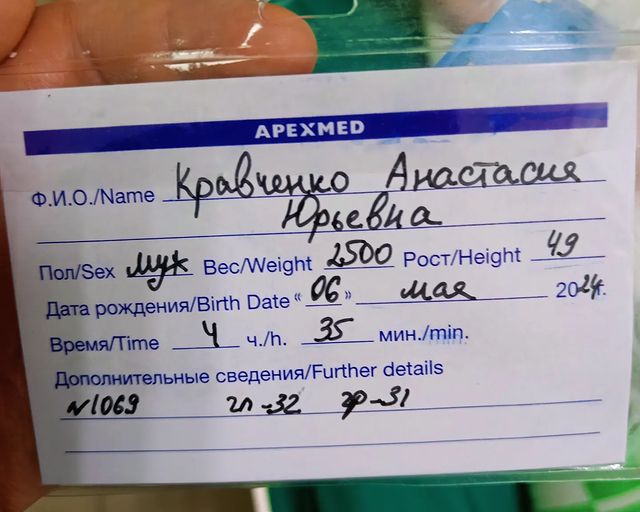 APEXMED
Ф.И.О./Name Кравченко Анастасия
Юрьевна
Пол/Sex муж Вес/Weight 2500 Рост/Height 49
Дата рождения/Birth Date “06” мая 2024г.
Время/Time 4 ч./h. 35 мин./min.
Дополнительные сведения/Further details
№1069 гл-32 гр-31